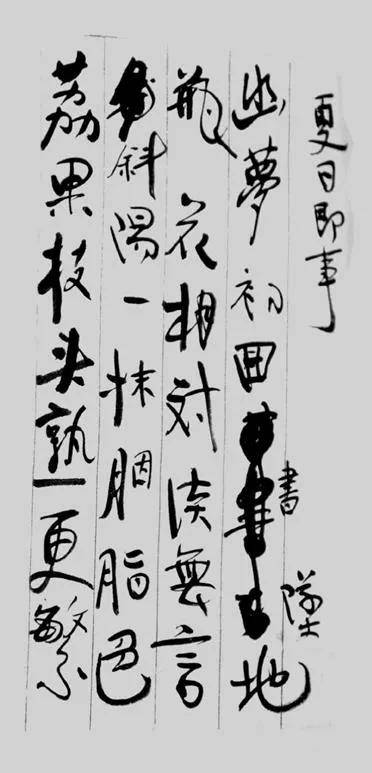 夏日即事
幽夢初囬書墜地
瓶花相対淡無言
斜陽一抹胭脂色
荔果枝头熟更繁